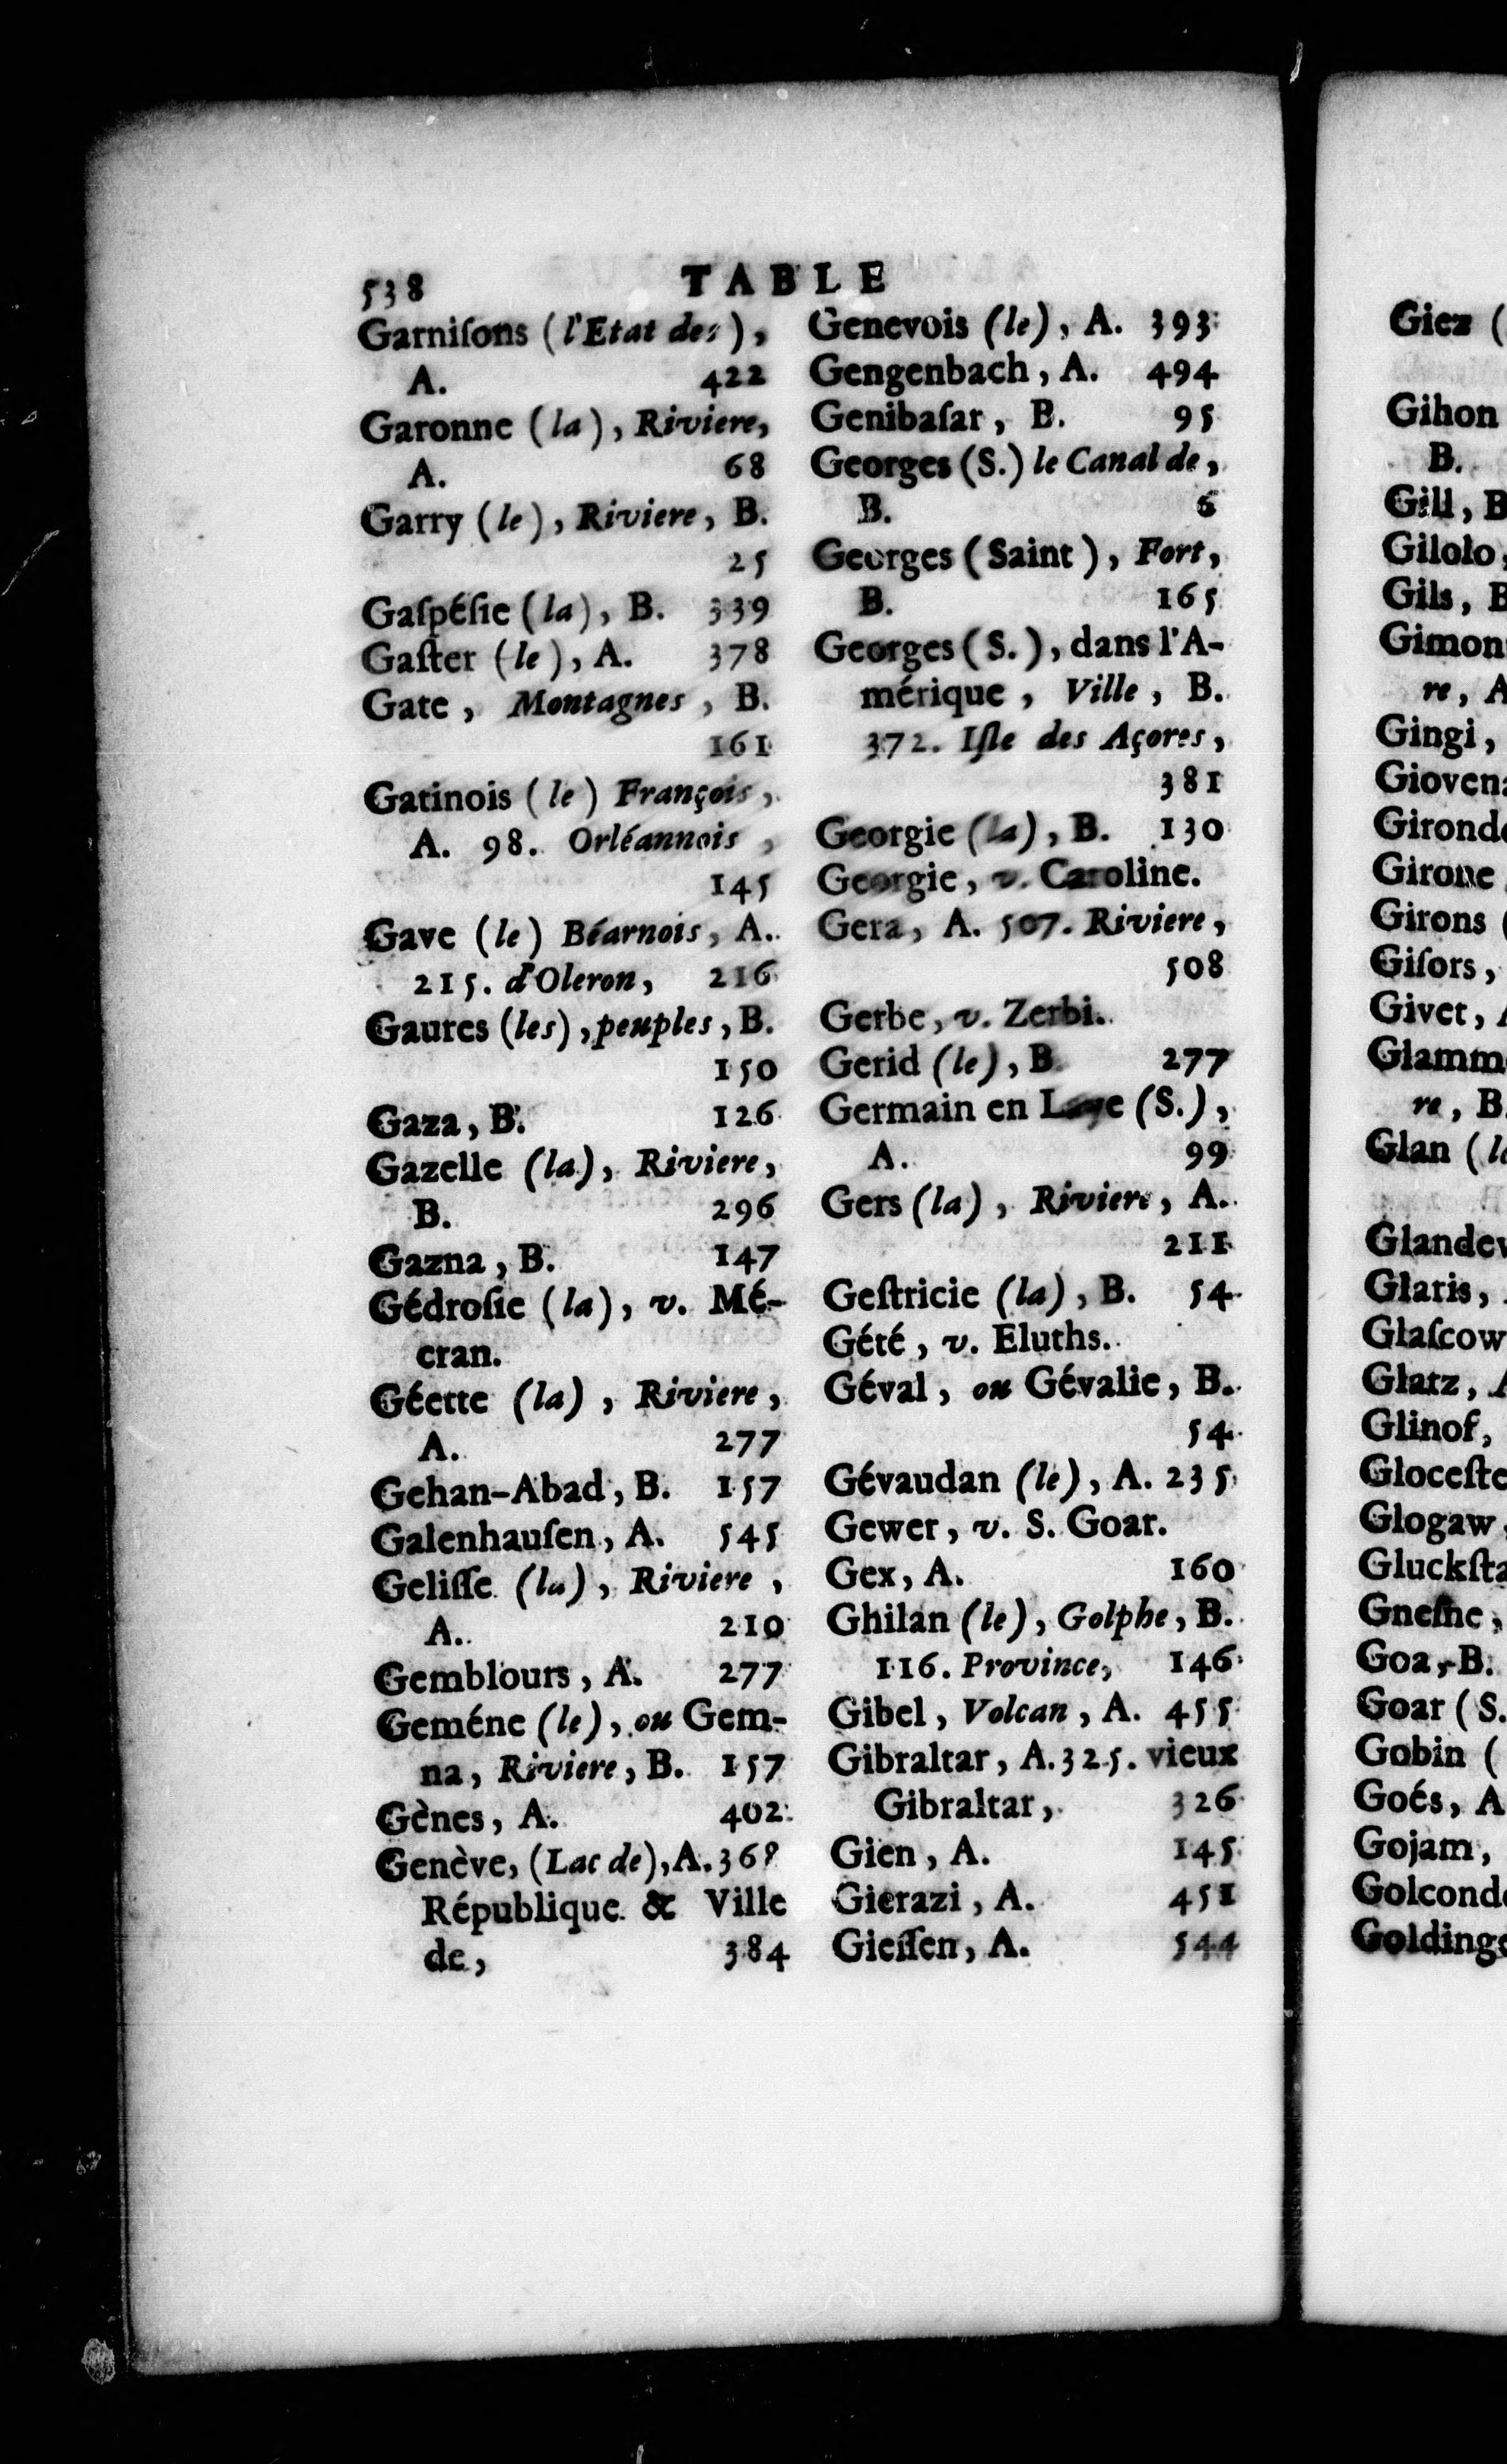 538 TABLE
Garniſons (l'Etat des),
A. 422
Garonne (la), Riviere,
A. 68
Garry (le), Riviere, B.
25
Gaſpéſie (la), B. 339
Gaſter (le), A. 378
Gate, Montagnes, B.
161
Gatinois (le) François,
A. 98. Orléannois,
145
Gave (le) Béarnois, A.
215. d'Oleron, 216
Gaures (les), peuples, B.
150
Gaza, B. 126
Gazelle (la), Riviere,
B. 296
Gazna, B. 147
Gédroſie (la), v. Mé-
cran.
Géette (la), Riviere,
A. 277
Gehan-Abad, B. 157
Galenhauſen, A. 545
Geliſſe (la), Riviere,
A. 210
Gemblours, A. 277
Geméne (le), ou Gem-
na, Riviere, B. 157
Gènes, A. 402
Genève, (Lac de), A. 368
République & Ville
de, 384
Genevois (le), A. 393
Gengenbach, A. 494
Genibaſar, B. 95
Georges (S.) le Canal de,
B. 6
Georges (Saint), Fort,
B. 165
Georges (S.), dans l'A-
mérique, Ville, B.
372. Iſle des Açores,
381
Georgie (la), B. 130
Georgie, v. Caroline.
Gera, A. 507. Riviere,
508
Gerbe, v. Zerbi.
Gerid (le), B. 277
Germain en Laye (S.),
A. 99
Gers (la), Riviere, A.
211
Geſtricie (la), B. 54
Gété, v. Eluths.
Géval, ou Gévalie, B.
54
Gévaudan (le), A. 235
Gewer, v. S. Goar.
Gex, A. 160
Ghilan (le), Golphe, B.
116. Province, 146
Gibel, Volcan, A. 455
Gibraltar, A. 325. vieux
Gibraltar, 326
Gien, A. 145
Gierazi, A. 451
Gieſſen, A. 544
Giez (
Gihon
B.
Gill, B
Gilolo,
Gils, B
Gimon
re, A
Gingi,
Giovena
Gironde
Girone
Girons (
Giſors,
Givet, A
Glamm
re, B.
Glan (la
Glandev
Glaris,
Glaſcow
Glatz, A
Glinof,
Gloceſte
Glogaw,
Gluckſta
Gneſne,
Goa, B.
Goar (S.
Gobin (
Goés, A
Gojam,
Golconde
Goldinge